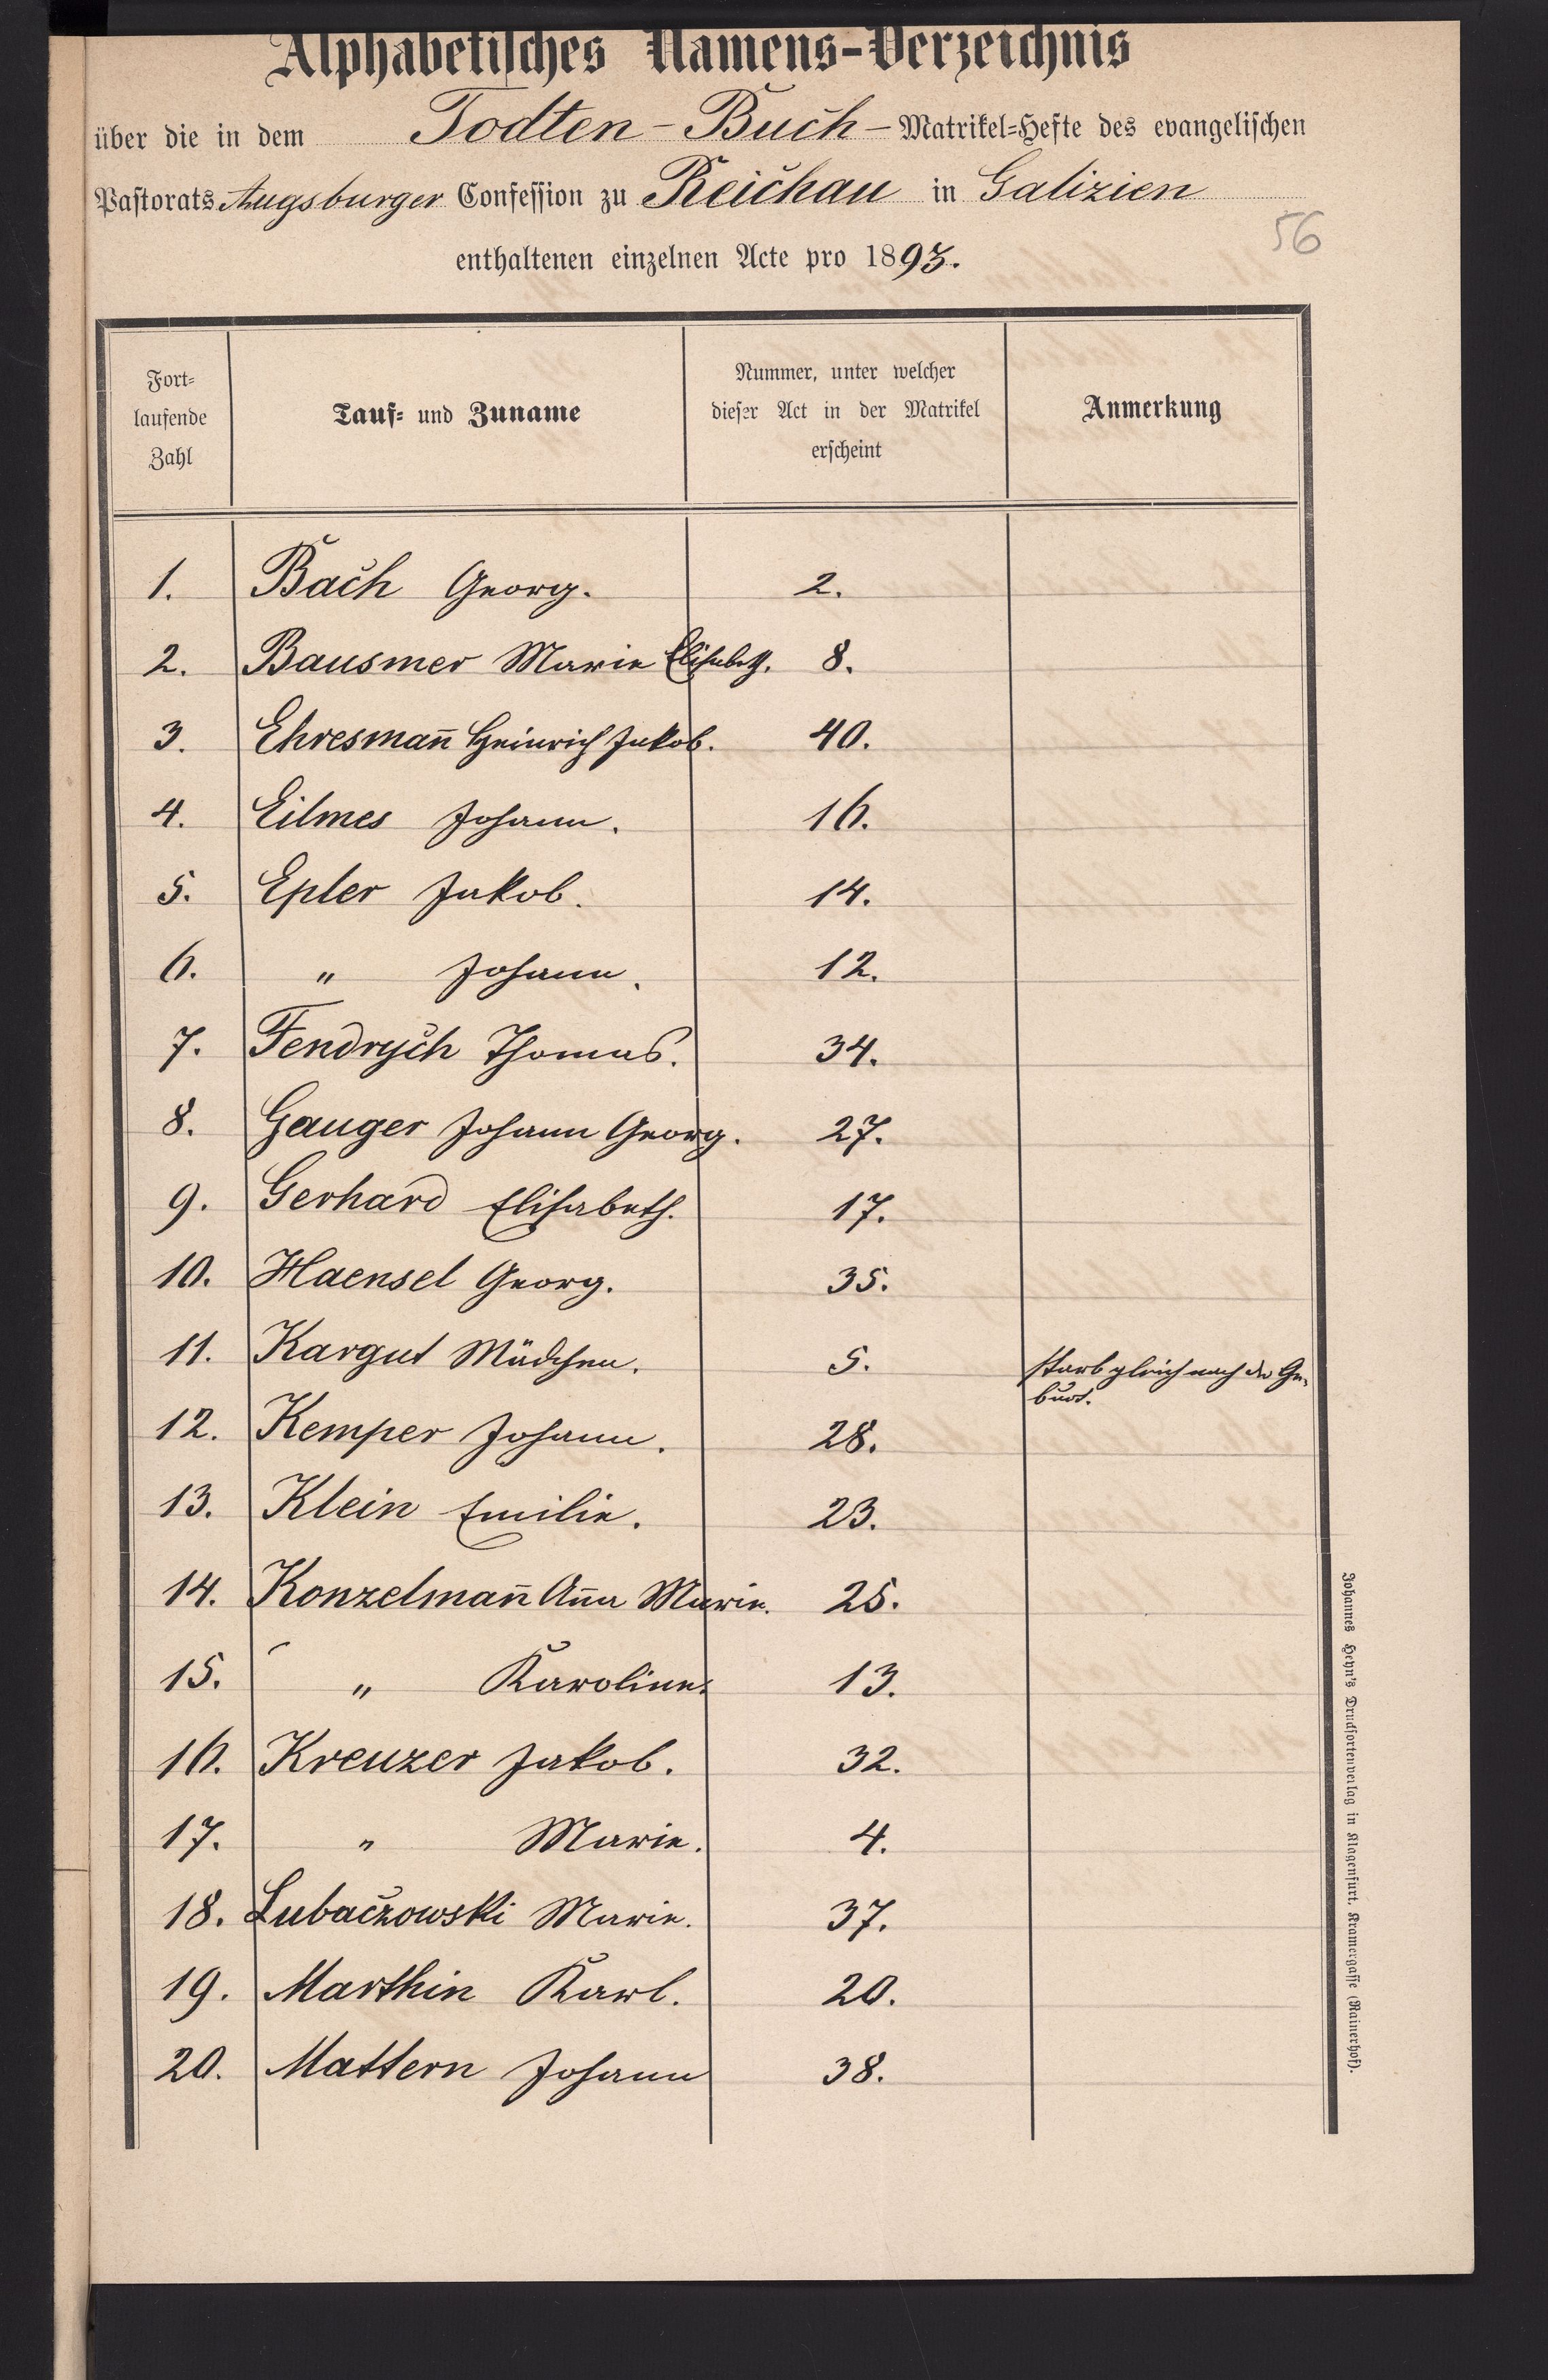 Alphabetisches Namens-Verzeichnis
über die in dem Todten-Buch-Matrikel-Hefte des evangelischen
Pastorats Augsburger Confession zu Reichau in Galizien
56
enthaltenen einzelnen Acte pro 1893.
Fort-
laufende
Zahl
Tauf- und Zuname
Nummer, unter welcher
dieser Act in der Matrikel
erscheint
Anmerkung
1. Bach Georg. 2.
2. Bausmer Marie Elisabeth. 8.
3. Ehresman̄ Heinrich Jakob. 40.
4. Eilmes Johann. 16.
5. Epler Jakob. 14.
6. " Johann. 12.
7. Fendrych Thomas. 34.
8. Gauger Johann Georg. 27.
9. Gerhard Elisabeth. 17.
10. Haensel Georg. 35.
11. Kargut Mädchen. 5. starb gleich nach der Ge-
burt.
12. Kemper Johann. 28.
13. Klein Emilie. 23.
14. Konzelman̄ An̄a Marie. 25.
15. " Karoline. 13.
16. Kreuzer Jakob. 32.
17. " Marie. 4.
18. Lubaczowski Marie. 37.
19. Marthin Karl. 20.
20. Mattern Johann 38.
Johannes Heyn's Drucksortenverlag in Klagenfurt, Kramergasse (Rainerhof).